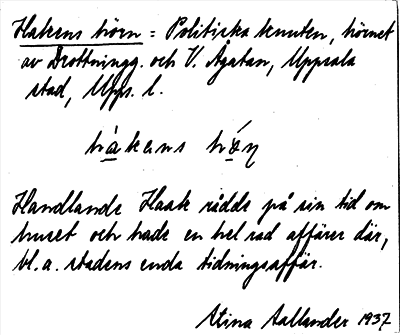 Hakens hörn = Politiska knuten, hörnet
av Drottningg. och V. Ågatan, Uppsala
stad, Upps. l.
hákens hǿn̥
Handlande Haak rådde på sin tid om
huset och hade en hel rad affärer där,
bl.a. stadens enda tidningsaffär.
Stina Sallander 1937